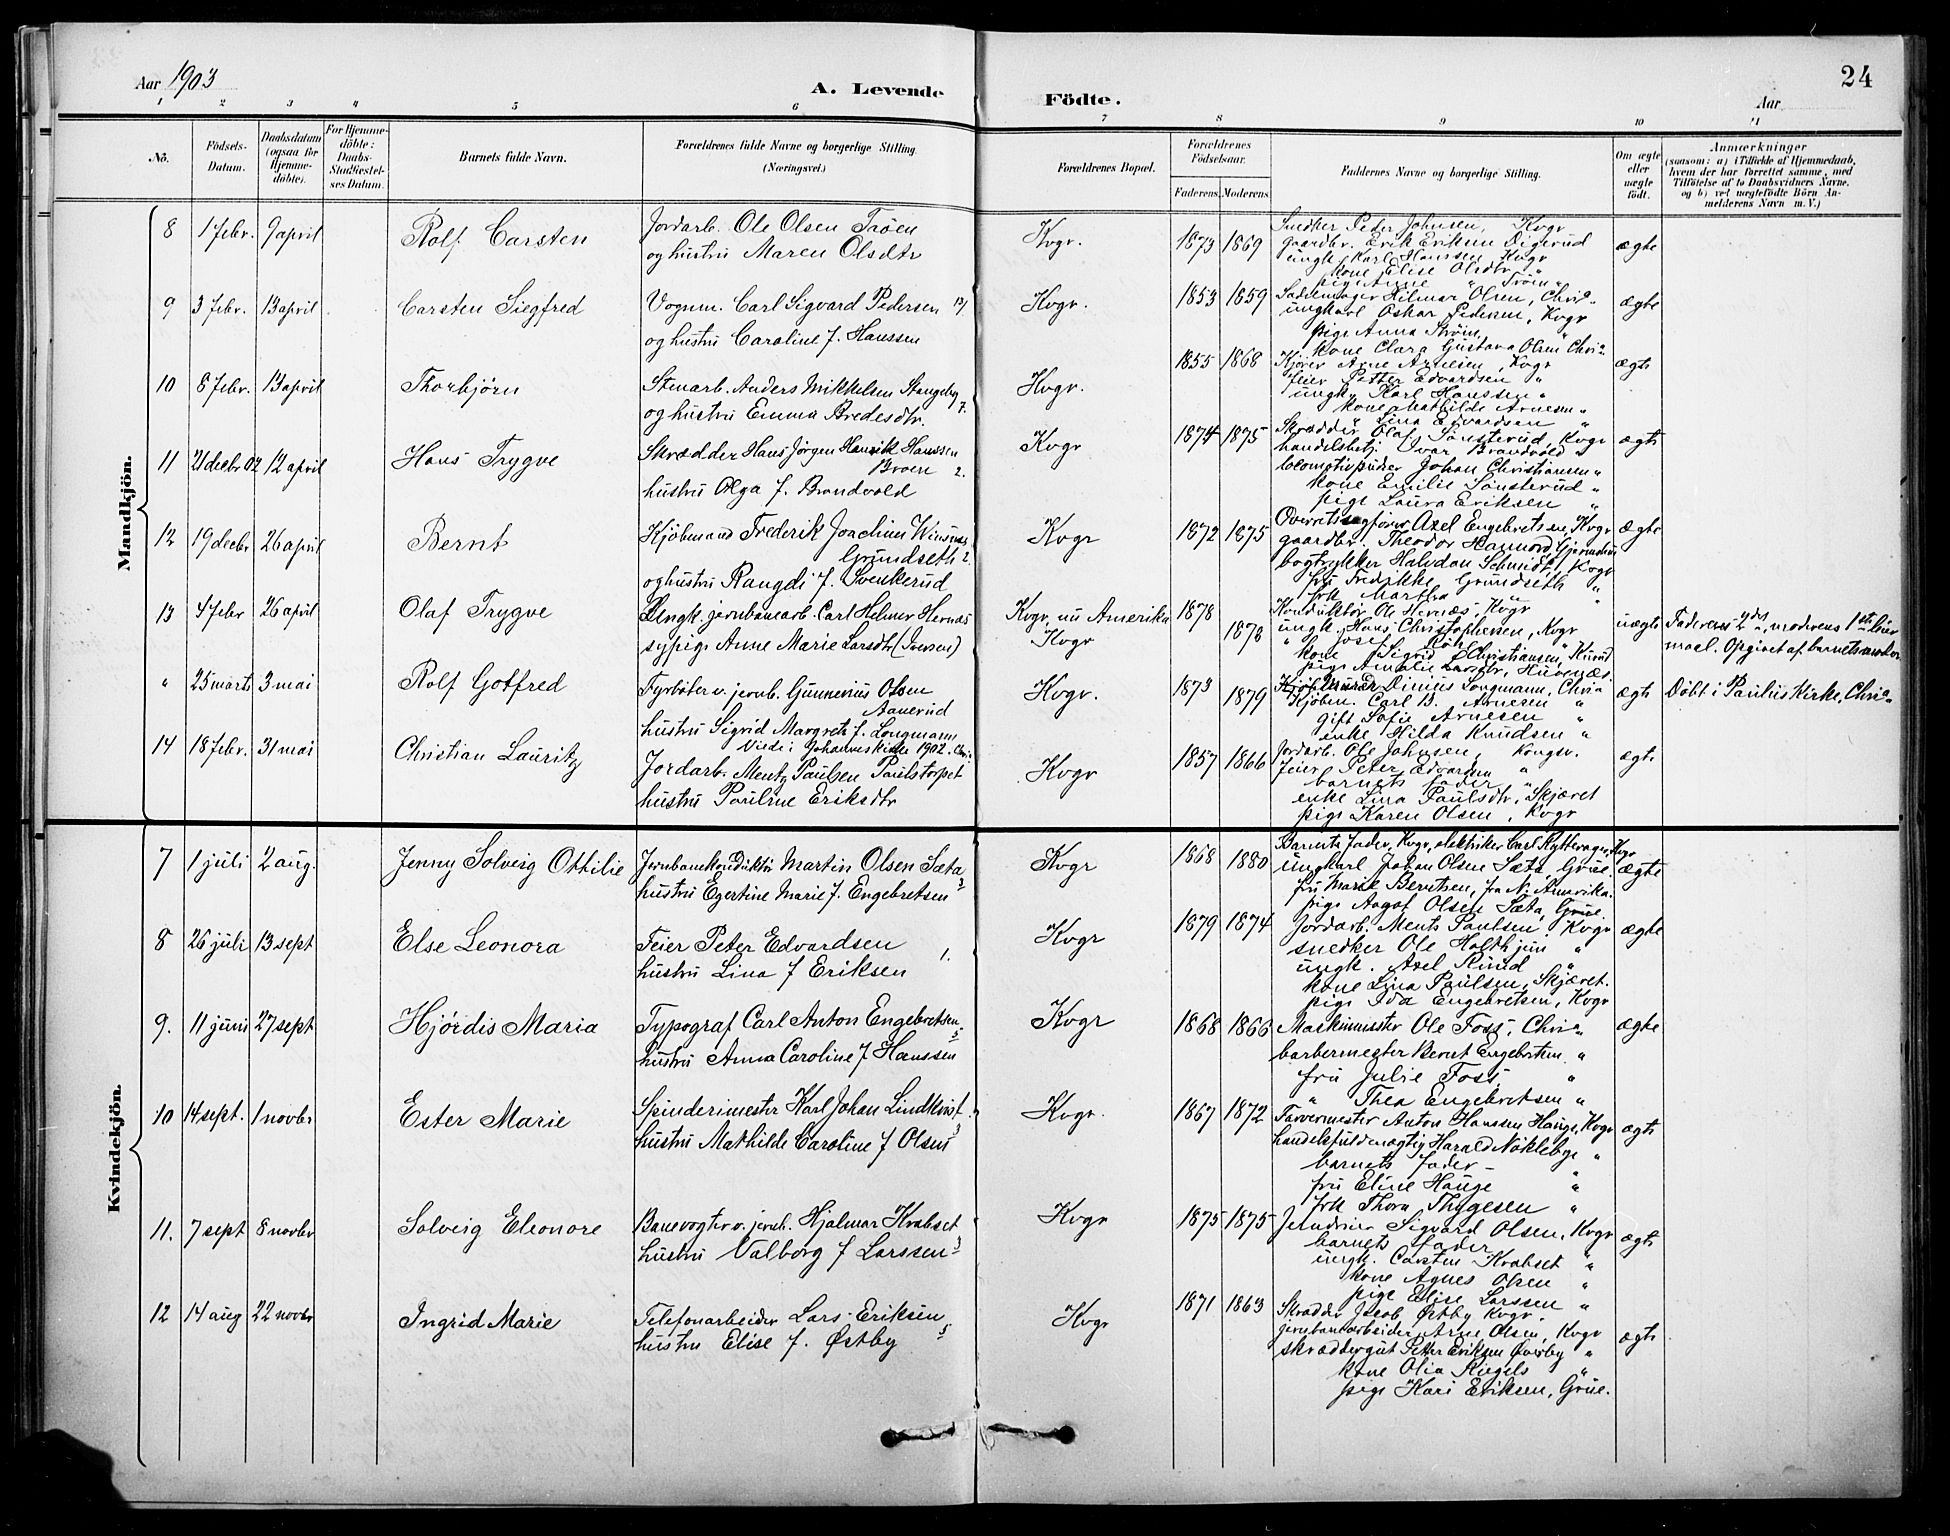 24
Aar 1903
A. Levende Födte.
Aar
1 2 3 4 5 6 7 8 9 10 11
No.
Födsels-Datum.
Daabsdatum (ogsaa for Hjemme-döbte).
For Hjemme-döbte: Daabs-Stadfæstel-ses Datum.
Barnets fulde Navn.
Forældrenes fulde Navne og borgerlige Stilling. (Næringsvei.)
Forældrenes Bopæl.
Forældrenes Födselsaar.
Faderens. Moderens.
Faddernes Navne og borgerlige Stilling.
Om ægte eller uægte födt.
Anmærkninger (saasom: a) i Tilfælde af Hjemmedaab, hvem der har forrettet samme, med Tilföielse af to Daabsvidners Navne, og b) ved uægtefödte Börn An-melderens Navn m. V.)
Mandkjön.
8 1 febr. 9 april Rolf Carsten
Jordarb. Ole Olsen Trøen
og hustru Maren Olsdtr
Kvgr. 1873 1869
Snedker Peter Johnsen, Kvgr
gaardbr. Erik Eriksen Digerud
ungk. Karl Hanssen Kvgr
kone Elise Olsdtr "
pige Anne " Trøen "
ægte
9 3 febr. 13 april Carsten Siegfred
Vognm. Carl Sigvard Pedersen
og hustru Caroline f. Hanssen
Kvgr. 1853 1859
Sadelmager Hilmar Olsen, Chria
ungkarl Oskar Pedersen, Kvgr
pige Anna Strøm "
kone Clara Gustava Olsen Chria
ægte
10 8 febr. 13 april Thorbjørn
Stenarb. Anders Mikkelsen Stangeby 7.
og hustru Emma Aredesdtr.
Kvgr. 1855 1868
Kjører Arne Arnesen, Kvgr
feier Petter Edvardsen "
ungk. Karl Hanssen "
kone Mathilde Arnesen "
" Lina Edvardsen "
ægte
11 21 decbr 02 12 april Hans Trygve
Skrædder Hans Jørgen Henrik Hanssen
Broen 2.
hustru Olga f. Brandvold
Kvgr 1874 1875
Skrædder Olaf Sønsterud, Kvgr
handelsbetj. Ivar Brandvold "
locomotivpudser Johan Christiansen "
kone Emilie Sønsterud "
pige Laura Eriksen "
ægte
12 19 decbr 26 april Bernt
Kjøbmand Frederik Joachim Winsnes
Grundseth 2.
og hustru Rangdi f. Svenkerud
Kvgr 1872 1875
Overretssagfører Axel Engebretsen, Kvgr
gaardbr. Theodor
bogtrykker Halvdan Schmidt, Kvgr
fru Fredrikke Grundseth "
frk Martha " "
ægte
13 4 febr 26 april Olaf Trygve
Ungk. jernbanearb. Carl Helmer Hernæs
sypige Anne Marie Larsdtr (Iversen)
Kvgr, nu Amerika
Kvgr
1878
1878
Konduktør Ole Hernæs, Kvgr
ungk. Hans Christophersen, Kvgr
" Josef "
kone Sigrid Christiansen,
pige Amalie Larsdtr, Husenæs.
uægte
Faderens 2det, moderens 1ste leier
maal. Opgivet af barnets moder.
" 25 marts 3 mai Rolf Gotfred
Fyrbøter v. jernb. Gunnerius Olsen
Aanerud
hustru Sigrid Margrete f. Longmann
Viede i Johanneskirke 1902. Chri.
Kvgr. 1873 1879
Dinius Longmann, Chria
Kjøbm. Carl B. Arnesen "
gift Sofie Arnesen "
enke Hilda Knudsen "
ægte
Døbt i Paulus Kirke, Chria
14 18 febr. 31 mai Christian Lauritz
Jordarb. Mentz Paulsen Paulstorpet
hustru Pauline Eriksdtr
Kvgr 1857 1866
Jordarb. Ole Johnsen, Kongsv.
Feier Peter Edvardsen "
barnets fader "
enke Lina Paulsdtr, Skjæret
pige Karen Olsen, Kvgr
ægte
Kvindekjön.
7 1 juli 2 aug. Jenny Solveig Ottilie
Jernbanekonduktør Martin Olsen Sæta 3
hustru Egertine Marie f. Engebretsen
Kvgr 1868 1880
Barnets fader, Kvgr, elektriker Carl Ryttervager, Kvgr
ungkarl Johan Olsen Sæta, Grue.
fru Marie Berntsen, fra N. Amerika.
pige Aagot Olsen Sæta, Grue.
ægte
8 26 juli 13 sept Else Leonora
Feier Peter Edvardsen 1.
hustru Lina f Eriksen
Kvgr 1879 1874
Jordarb. Ments Paulsen Kvgr
snedker Ole Holth jun "
ungk. Axel Rund "
kone Lina Paulsen, Skjæret.
pige Ida Engebretsen, Kvgr
ægte
9. 11 juni 27 sept Hjørdis Maria
Typograf Carl Anton Engebretsen 5
hustru Anna Caroline f Hanssen
Kvgr 1868 1866
Maskinmester Ole Foss, Chria
barbermester Bernt Engebretsen "
fru Julie Foss "
" Thea Engebretsen "
ægte
10 14 sept. 1 novbr Ester Marie
Spinderimester Karl Johan Lindkvist 3
hustru Mathilde Caroline f Olsen
Kvgr. 1867 1872
Farvermester Anton Hanssen Hauge, Kvgr
handelsfuldmægtig Harald Nøkleby "
barnets fader "
fru Eline Hauge "
frk Thora Thygesen "
ægte
11. 7 sept 8 novbr Solveig Eleonore
Banevogter v. jernb. Hjalmar Krabset 3
hustru Valborg f Larssen
Kvgr 1875 1875
Sigvard Olsen, Kvgr
barnets fader "
ungk. Carsten Krabset "
kone Agnes Olsen "
pige Elise Larssen "
ægte
12 14 aug 22 novbr Ingrid Marie
Telefonarbeider Lars Eriksen 5
hustru Elise f. Østby
Kvgr 1871 1863
Skrædder Jacob Østby Kvgr.
jernbanearbeider Arne Olsen, Kvgr
skræddergut Petter Eriksen Øverby "
kone Olia Riegels "
pige Kari Eriksen, Grue.
ægte